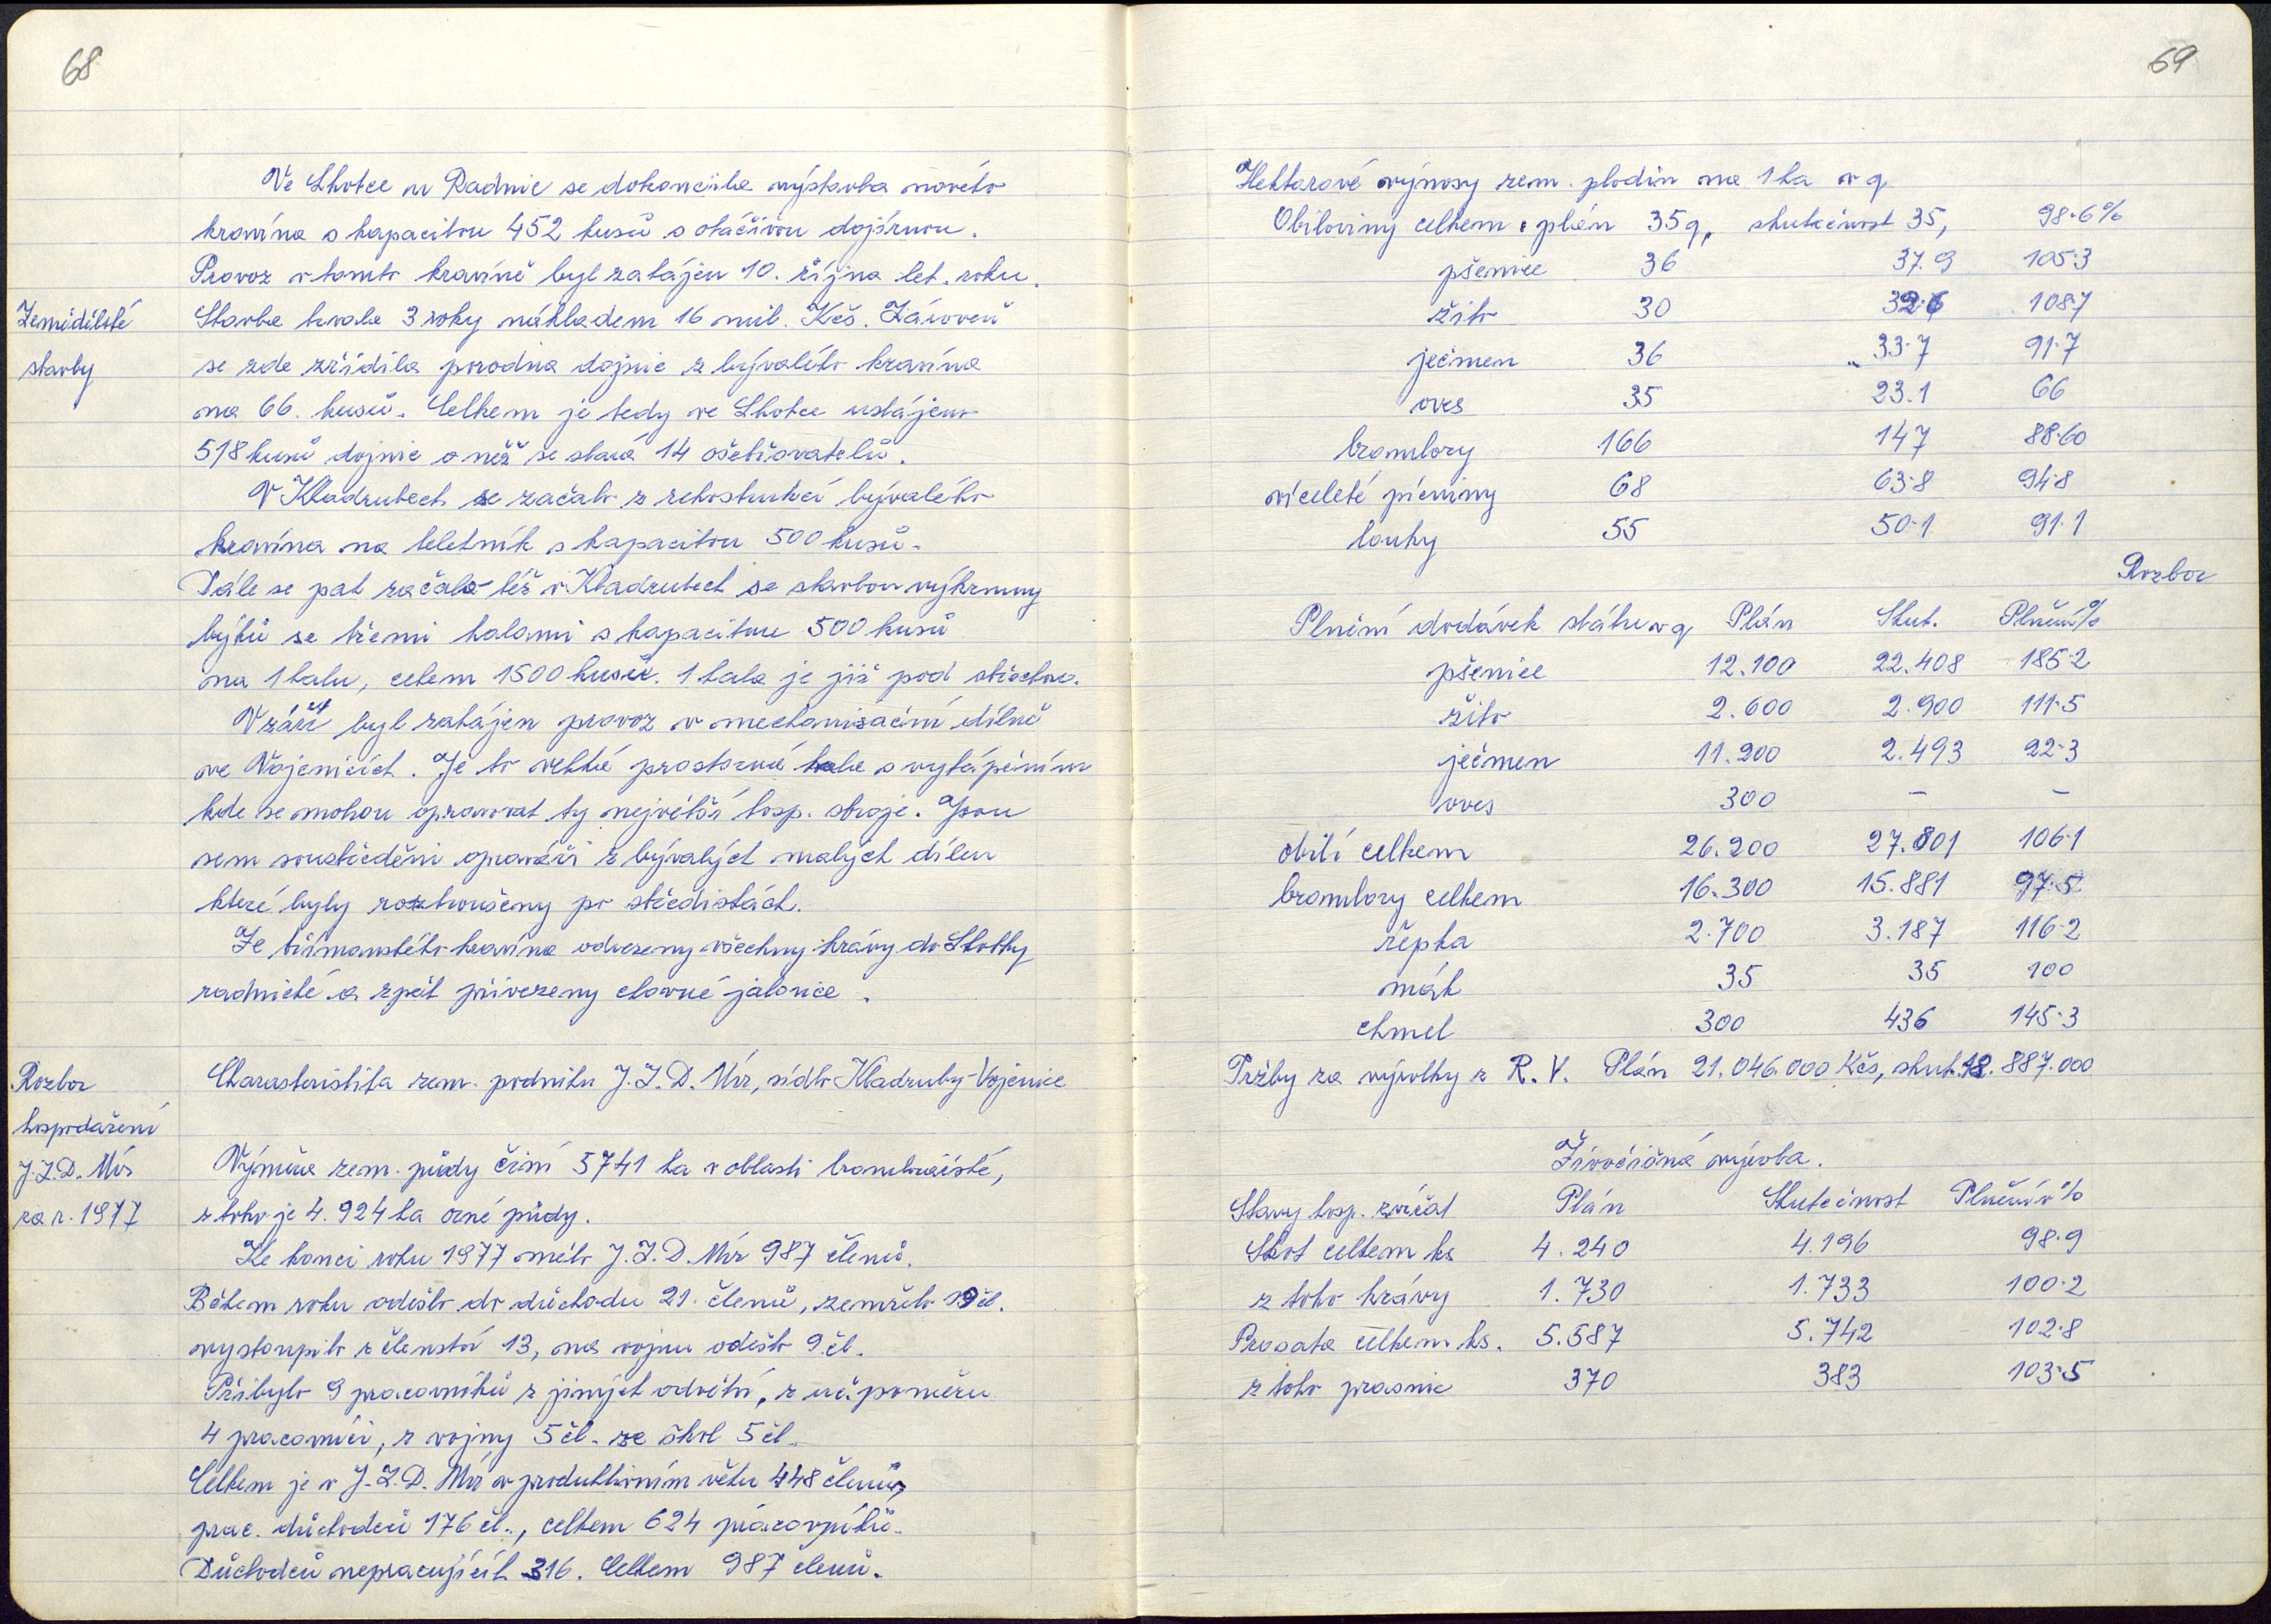 68
Ve Lhotce u Radnic se dokončila výstavba nového
kravína s kapacitou 452 kusů s otáčivou dojírnou.
Provoz v tomto kravíně byl zahájen 10. října let. roku.
Zemědělské
stavby
Stavba trvala 3 roky nákladem 16 mil. Kčs. Zároveň
se zde zřídila porodna dojnic z bývalého kravína
na 66. kusů. Celkem je tedy ve Lhotce ustájeno
518 kusů dojnic o něž se stará 14 ošetřovatelů.
V Kladrubech se začalo z rekostrukcí bývalého
kravína na teletník s kapacitou 500 kusů.
Dále se pak začalo též v Kladrubech se stavbou výkrmny
býků se třemi halami s kapacitou 500 kusů
na 1 halu, celem 1500 kusů. 1 hala je již pod střechou.
V září byl zahájen provoz v mechanisační dílně
ve Vojenicích. Je to velká prostorná hala s vytápěním
kde se mohou opravovat ty největší hosp. stroje. Jsou
sem soustředěni opraváři z bývalých malých dílen
které byly roztroušeny po střediskách.
Ze břímanského kravína odvezeny všechny krávy do Lhotky
radnické a zpět přivezeny chovné jalovice.
Rozbor
hospodaření
J.Z.D. Mír
za r. 1977
Charasteristika zem. podniku J.Z.D. Mír, sídlo Kladruby-Vojenice
Výměra zem. půdy činí 5741 ha v oblasti bramborářské,
z toho je 4.924 ha orné půdy.
Ke konci roku 1977 mělo J.Z.D. Mír 987 členů.
Během roku odešlo do důchodu 21. členů, zemřelo 19 čl.
vystoupilo z členství 13, na vojnu odešlo 9 čl.
Přibylo 9 pracovníků z jiných odvětví, z uč. poměru
4 pracovníci, z vojny 5 čl. ze škol 5 čl.
Celkem je v J.Z.D. Mír v produktivním věku 448 členů,
prac. důchodců 176 čl., celkem 624 pracovníků.
Důchodců nepracujících 316. Celkem 987 členů.
69
Hektarové výnosy zem. plodin na 1 ha v q
Obiloviny celkem: plán 35 q, skutečnost 35, 98.6%
pšenice 36 37.9 105.3
žito 30 32.6 108.7
ječmen 36 33.7 91.7
oves 35 23.1 66
brambory 166 147 88.60
víceleté pícniny 68 63.8 94.8
louky 55 50.1 91.1
Rozbor
Plnění dodávek státu v q Plán Skut. Plnění %
pšenice 12.100 22.408 185.2
žito 2.600 2.900 111.5
ječmen 11.200 2.493 22.3
oves 300 – –
obilí celkem 26.200 27.801 106.1
brambory celkem 16.300 15.881 97.5
řepka 2.700 3.187 116.2
mák 35 35 100
chmel 300 436 145.3
Tržby za výrobky z R.V. Plán 21.046.000 Kčs, skut. 18.887.000
Živočišná výroba.
Stavy hosp. zvířat Plán Skutečnost Plnění v %
Skot celkem ks 4.240 4.196 98.9
z toho krávy 1.730 1.733 100.2
Prasata celkem ks. 5.587 5.742 102.8
z toho prasnic 370 383 103.5